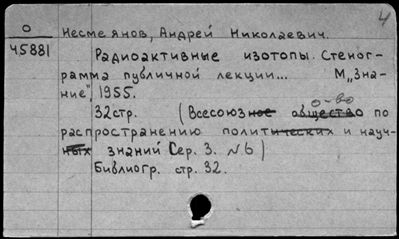 4
О
45881
Несмеянов, Андрей Николаевич.
Радиоактивные изотопы. Стеног-
рамма публичной лекции... М „Зна-
ние", 1955.
о-во
32стр. (Всесоюзное общество по
распространению политических и науч-
ных знаний Сер. 3. №6)
Библиогр. стр. 32.